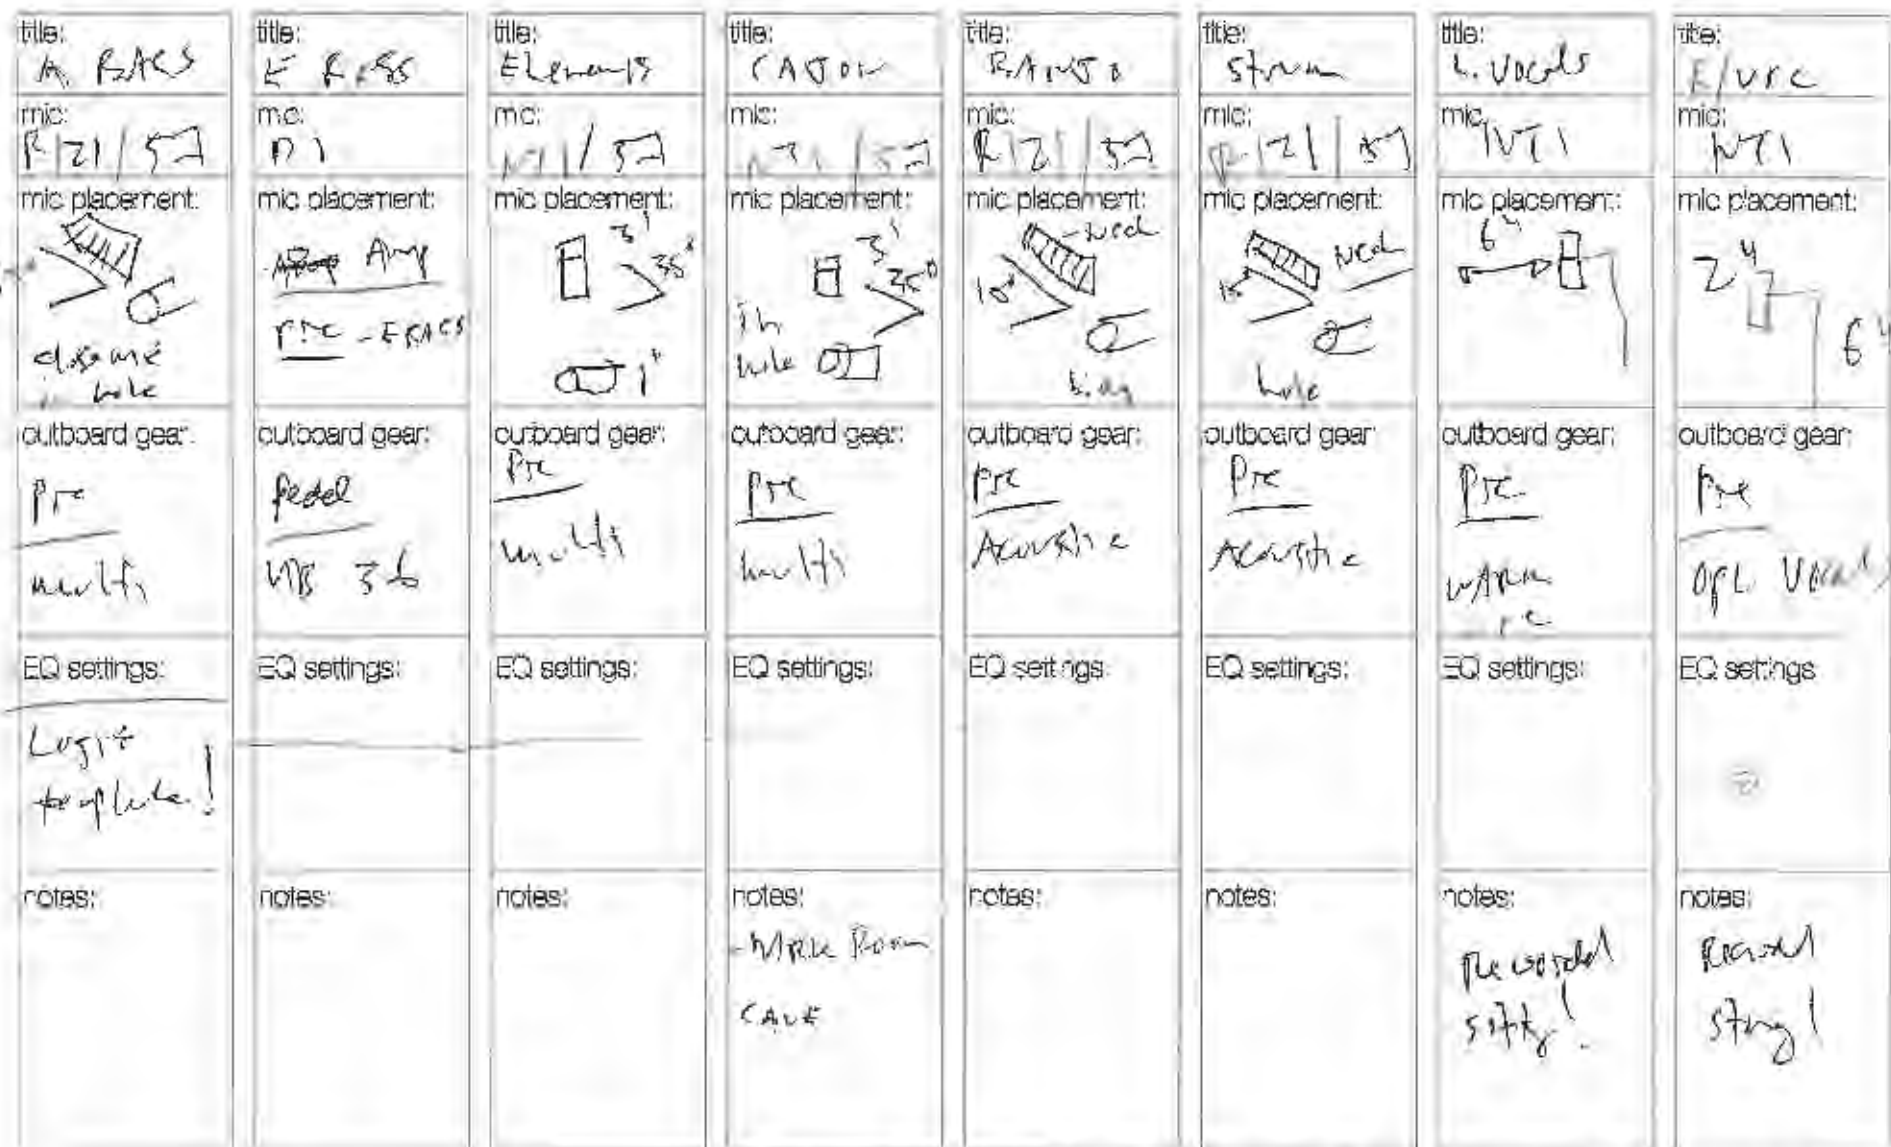 title:
A. BASS
mic:
R121/57
mic placement:
hole
outboard gear:
Pre
multi
EQ settings:
Logic
template!
notes:
title:
E BASS
mic:
DI
mic placement:
Amp
Pre - E BASS
outboard gear:
Pedal
EQ settings:
notes:
title:
Elements
mic:
/ 57
mic placement:
3'
35°
1'
outboard gear:
Pre
multi
EQ settings:
notes:
title:
CAJON
mic:
/57
mic placement:
3'
35°
in
hole
outboard gear:
Pre
multi
EQ settings:
notes:
Room
CAVE
title:
BANJO
mic:
R121/57
mic placement:
-Neck
10"
outboard gear:
Pre
Acoustic
EQ settings:
notes:
title:
Strum
mic:
R121/57
mic placement:
Neck
15"
hole
outboard gear:
Pre
Acoustic
EQ settings:
notes:
title:
L. Vocals
mic:
NT1
mic placement:
6"
outboard gear:
Pre
WARM
EQ settings:
notes:
Recorded
softly!
title:
mic:
NT1
mic placement:
2"
6"
outboard gear:
Pre
Opt. Vocals
EQ settings
notes:
Record
strong!